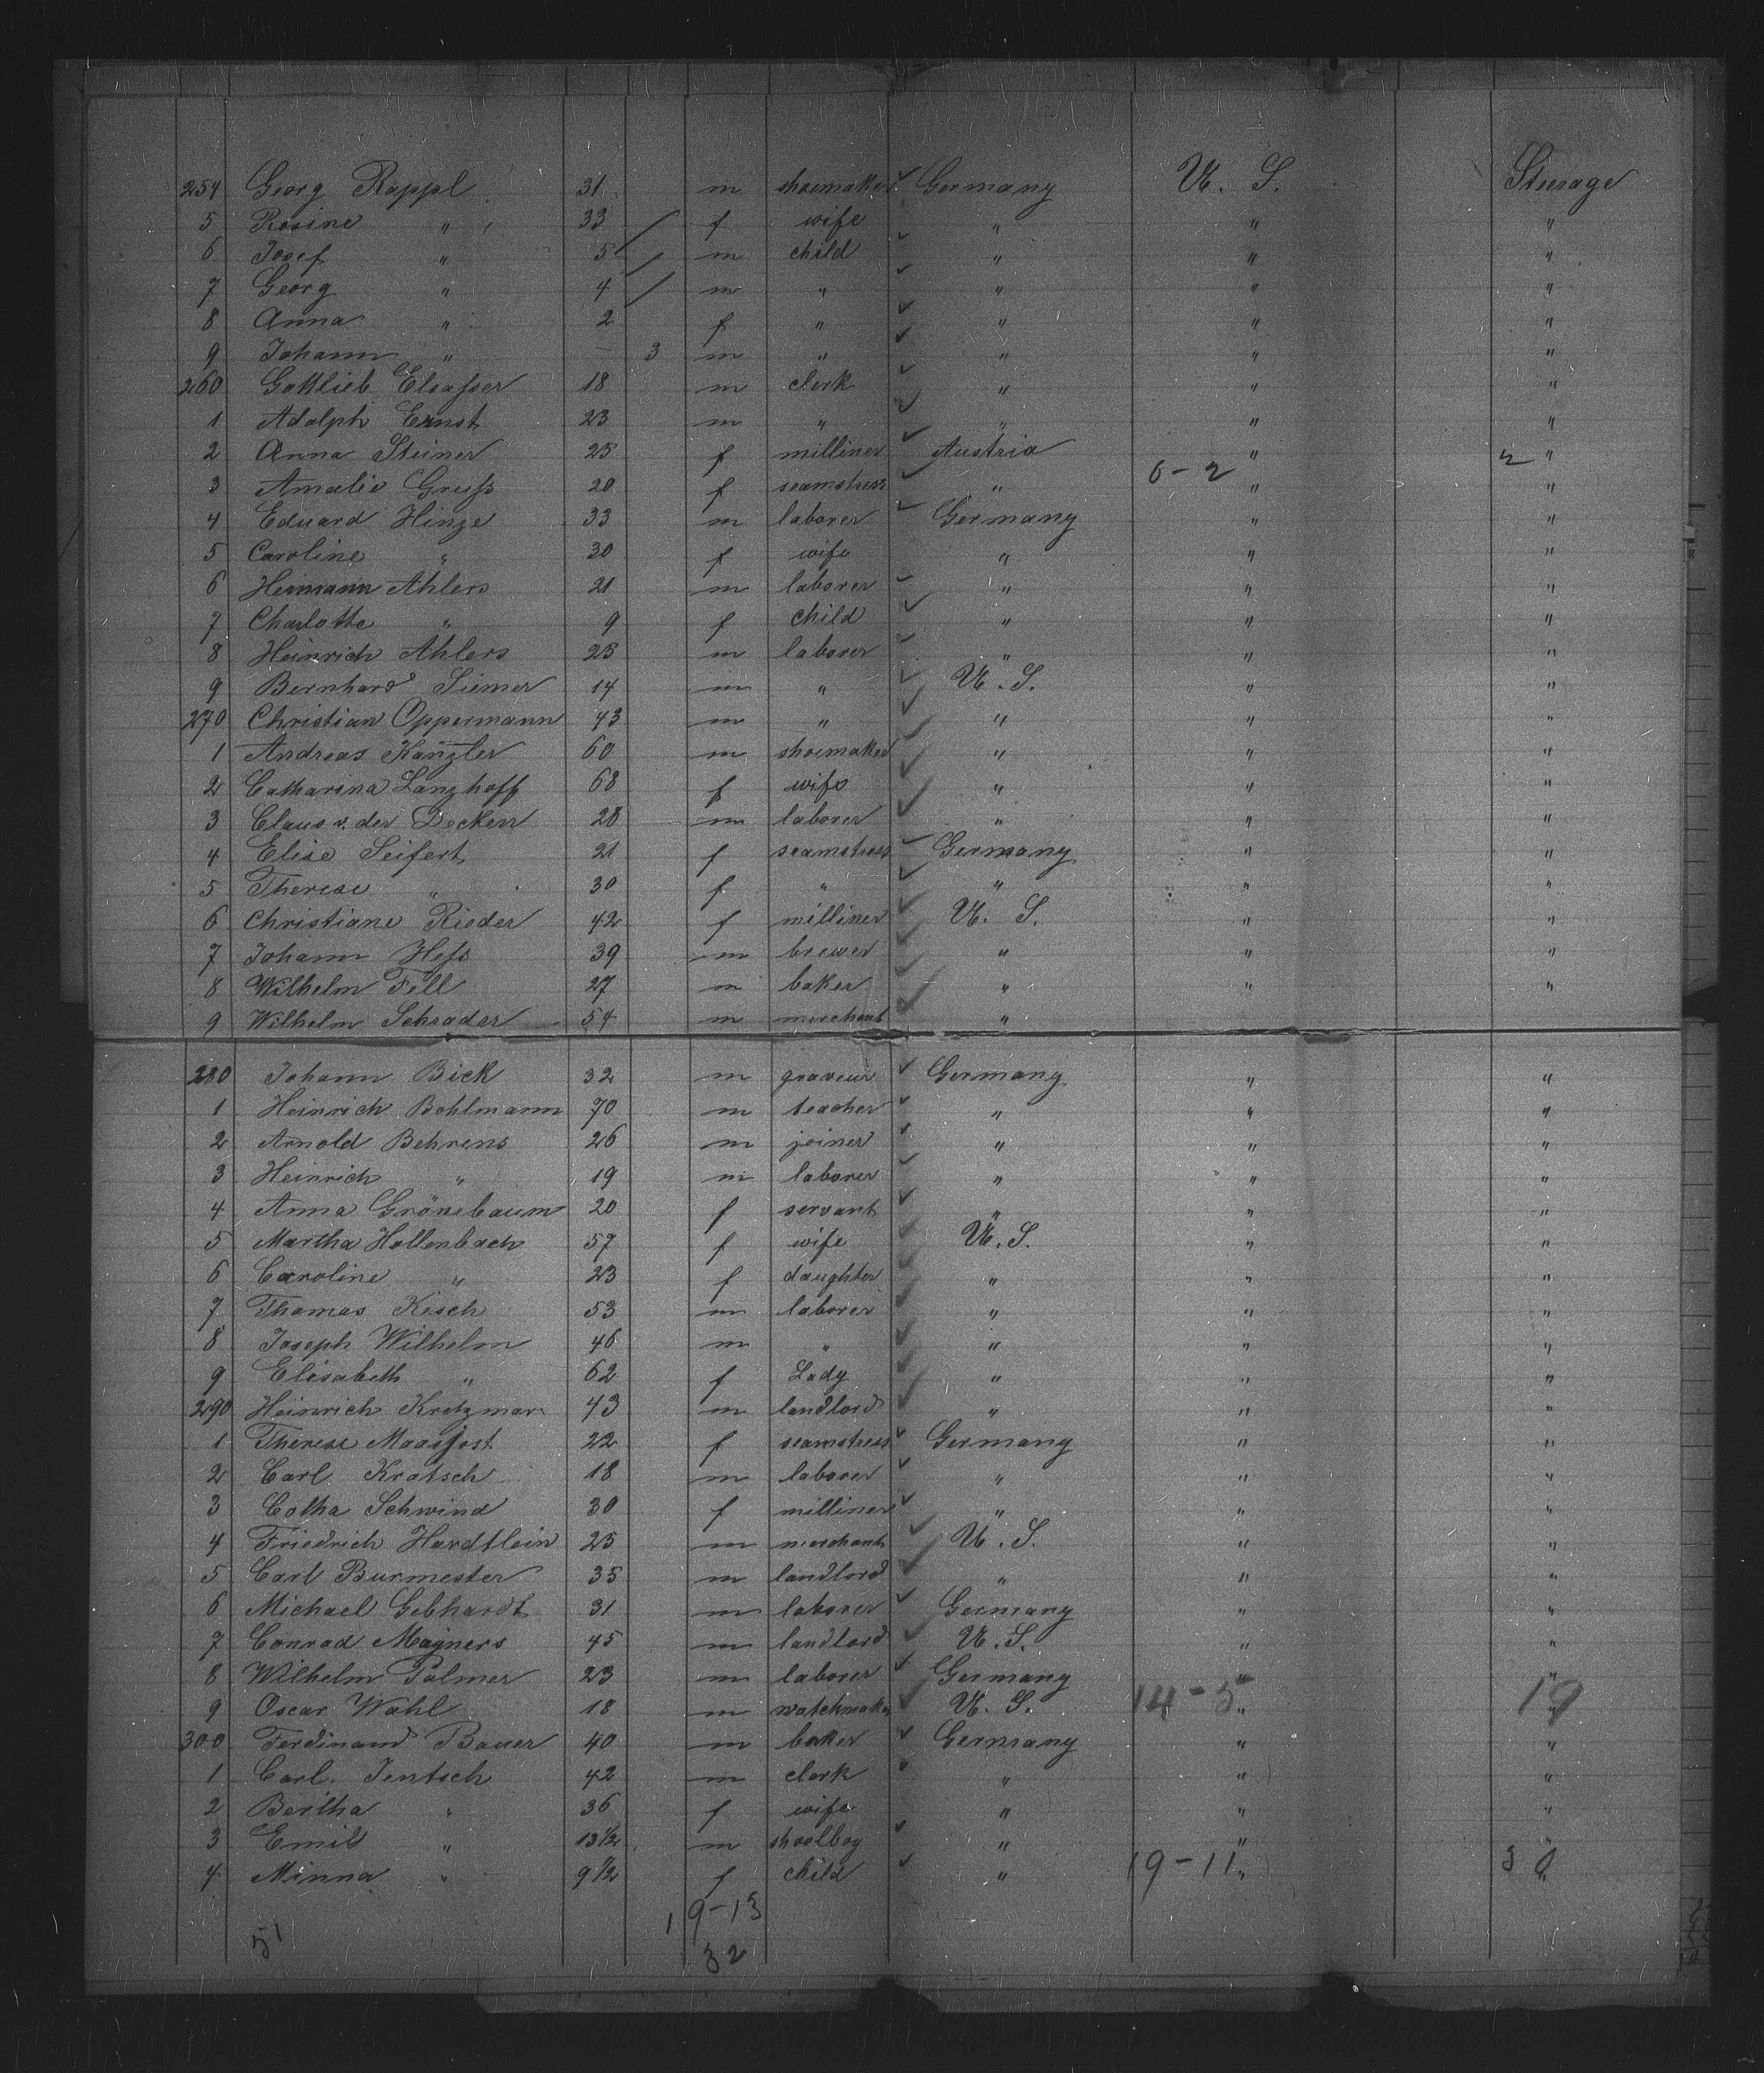 254 Georg Rappl 31 m shoemaker Germany U. S. Steerage
5 Rosine " 33 f wife " " "
6 Josef " 5 m child " " "
7 Georg " 4 m " " " "
8 Anna " 2 f " " " "
9 Johann " — 3 m " " " "
260 Gottlieb Elsaſser 18 m clerk " " "
1 Adolph Ernst 23 m " " " "
2 Anna Steiner 25 f milliner Austria " 2 "
3 Amalie Gruſs 20 f seamstress " 0-2 " "
4 Eduard Hinze 33 m laborer Germany " "
5 Caroline " 30 f wife " " "
6 Hermann Ahlers 21 m laborer " " "
7 Charlotte " 9 f child " " "
8 Heinrich Ahlers 25 m laborer " " "
9 Bernhard Siemer 14 m " U. S. " "
270 Christian Oppermann 43 m " " " "
1 Andreas Kanzler 60 m shoemaker " " "
2 Catharina Langhoff 68 f wife " " "
3 Claus v. der Decken 28 m laborer " " "
4 Elise Seifert 21 f seamstress Germany " "
5 Therese " 30 f " " " "
6 Christiane Rieder 42 f milliner U. S. " "
7 Johann Heſs 39 m brewer " " "
8 Wilhelm Fell 27 m baker " " "
9 Wilhelm Schrader 54 m merchant "
280 Johann Bick 32 m graveur Germany " "
1 Heinrich Bohlmann 70 m teacher " " "
2 Arnold Behrens 26 m joiner " " "
3 Heinrich " 19 m laborer " " "
4 Anna Grönebaum 20 f servant " " "
5 Martha Hollenbach 57 f wife U. S. " "
6 Caroline " 23 f daughter " " "
7 Thomas Kisch 53 m laborer " " "
8 Joseph Wilhelm 46 m " " " "
9 Elisabeth " 62 f Lady " " "
290 Heinrich Kretzmar 43 m landlord " " "
1 Therese Maasjost 22 f seamstress Germany " "
2 Carl Kratsch 18 m laborer " " "
3 Cotha Schwind 30 f milliner " " "
4 Friedrich Hardtlein 25 m merchant U. S. " "
5 Carl Burmester 35 m landlord " " "
6 Michael Gebhardt 31 m laborer Germany " "
7 Conrad Magners 45 m landlord U. S. " "
8 Wilhelm Palmer 23 m laborer Germany " "
9 Oscar Wahl 18 m watchmaker U. S. 14-5 " 19 "
300 Ferdinand Bauer 40 m baker Germany " "
1 Carl Jentsch 42 m clerk " " "
2 Bertha " 36 f wife " " "
3 Emil " 13 1/2 m shoolboy " " "
4 Minna " 9 1/2 f child " 19-11 " 30 "
51 19-13
32